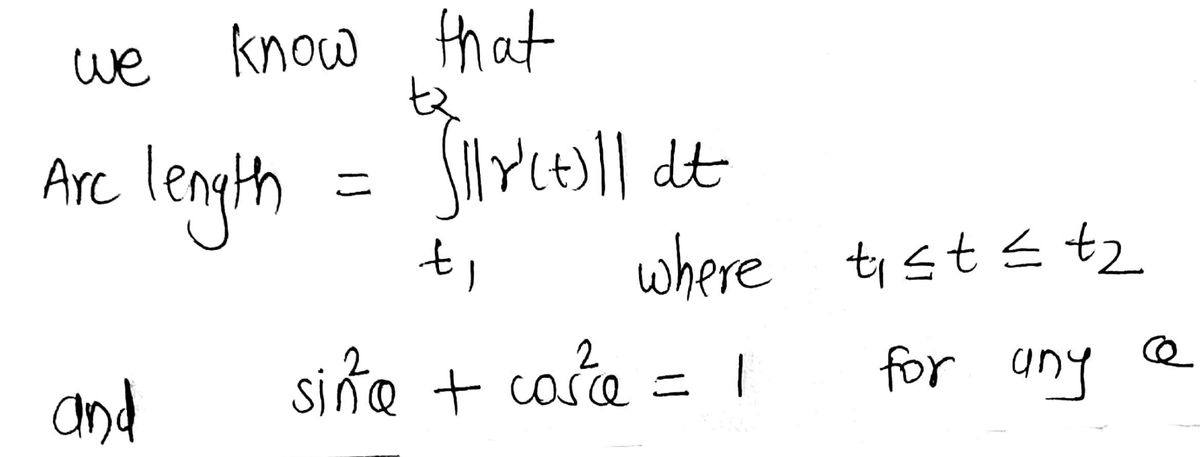 we know that
Arc length = ∫_{t_1}^{t_2} ||r'(t)|| dt
where t_1 ≤ t ≤ t_2
and sin²θ + cos²θ = 1 for any θ